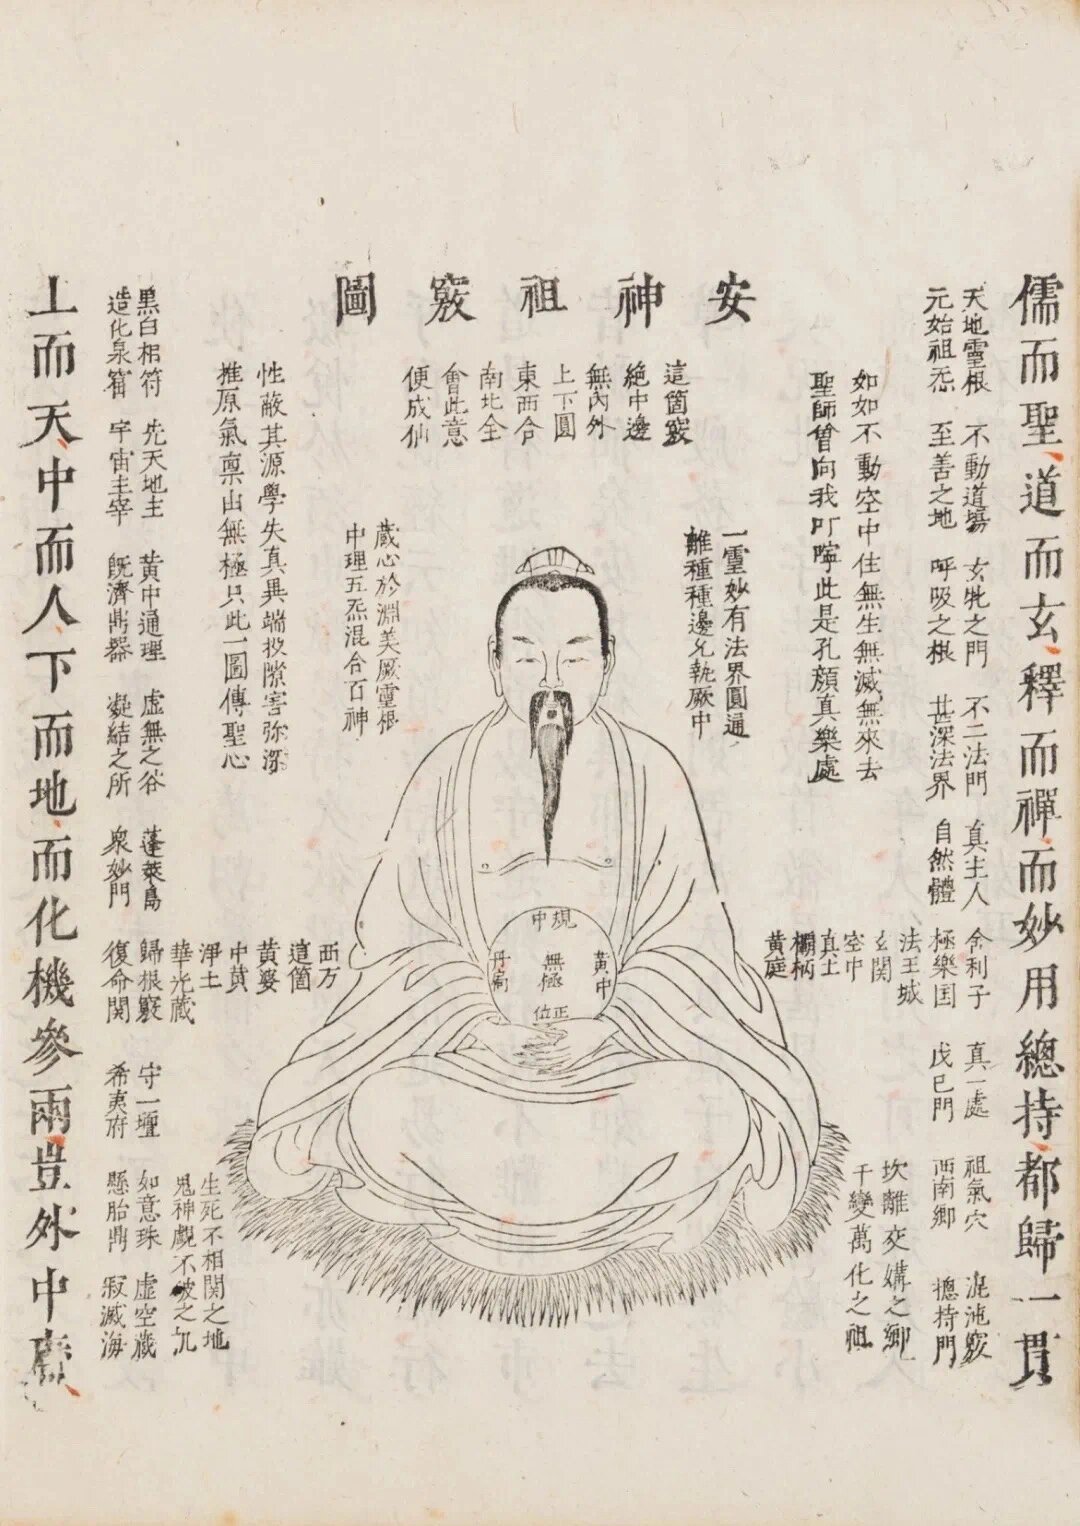 安神祖竅圖
儒而聖道而玄釋而禪而妙用總持都歸一貫
天地靈根 不動道場 玄牝之門 不二法門 真主人 舍利子 真一處 祖氣穴 混沌竅
元始祖炁 至善之地 呼吸之根 甚深法界 自然體 極樂国 戊己門 西南鄉 摠持門
法王城
玄関
空中
真土
欛柄
黃庭
坎離交媾之鄉
千變萬化之祖
如如不動空中住無生無滅無來去
聖師曾向我叮嚀此是孔顏真樂處
一靈妙有法界圓通
離種種邊允執厥中
這箇竅
絶中邊
無內外
上下圓
東西合
南北全
會此意
便成仙
規中
黃中
無極
丹扃
正位
藏心於淵美厥靈根
中理五炁混合百神
性蔽其源學失真異端投隙害弥深
推原氣禀由無極只此一圖傳聖心
西方
這箇
黃婆
中黃
淨土
華光藏
生死不相関之地
鬼神覷不破之九
黑白相符 先天地主 黃中通理 虛無之谷 蓬萊島 歸根竅 守一壇 如意珠 虛空藏
造化泉窟 宇宙主宰 既濟鼎器 凝結之所 衆妙門 復命関 希夷府 懸胎鼎 寂滅海
上而天中而人下而地而化機參兩豈外中